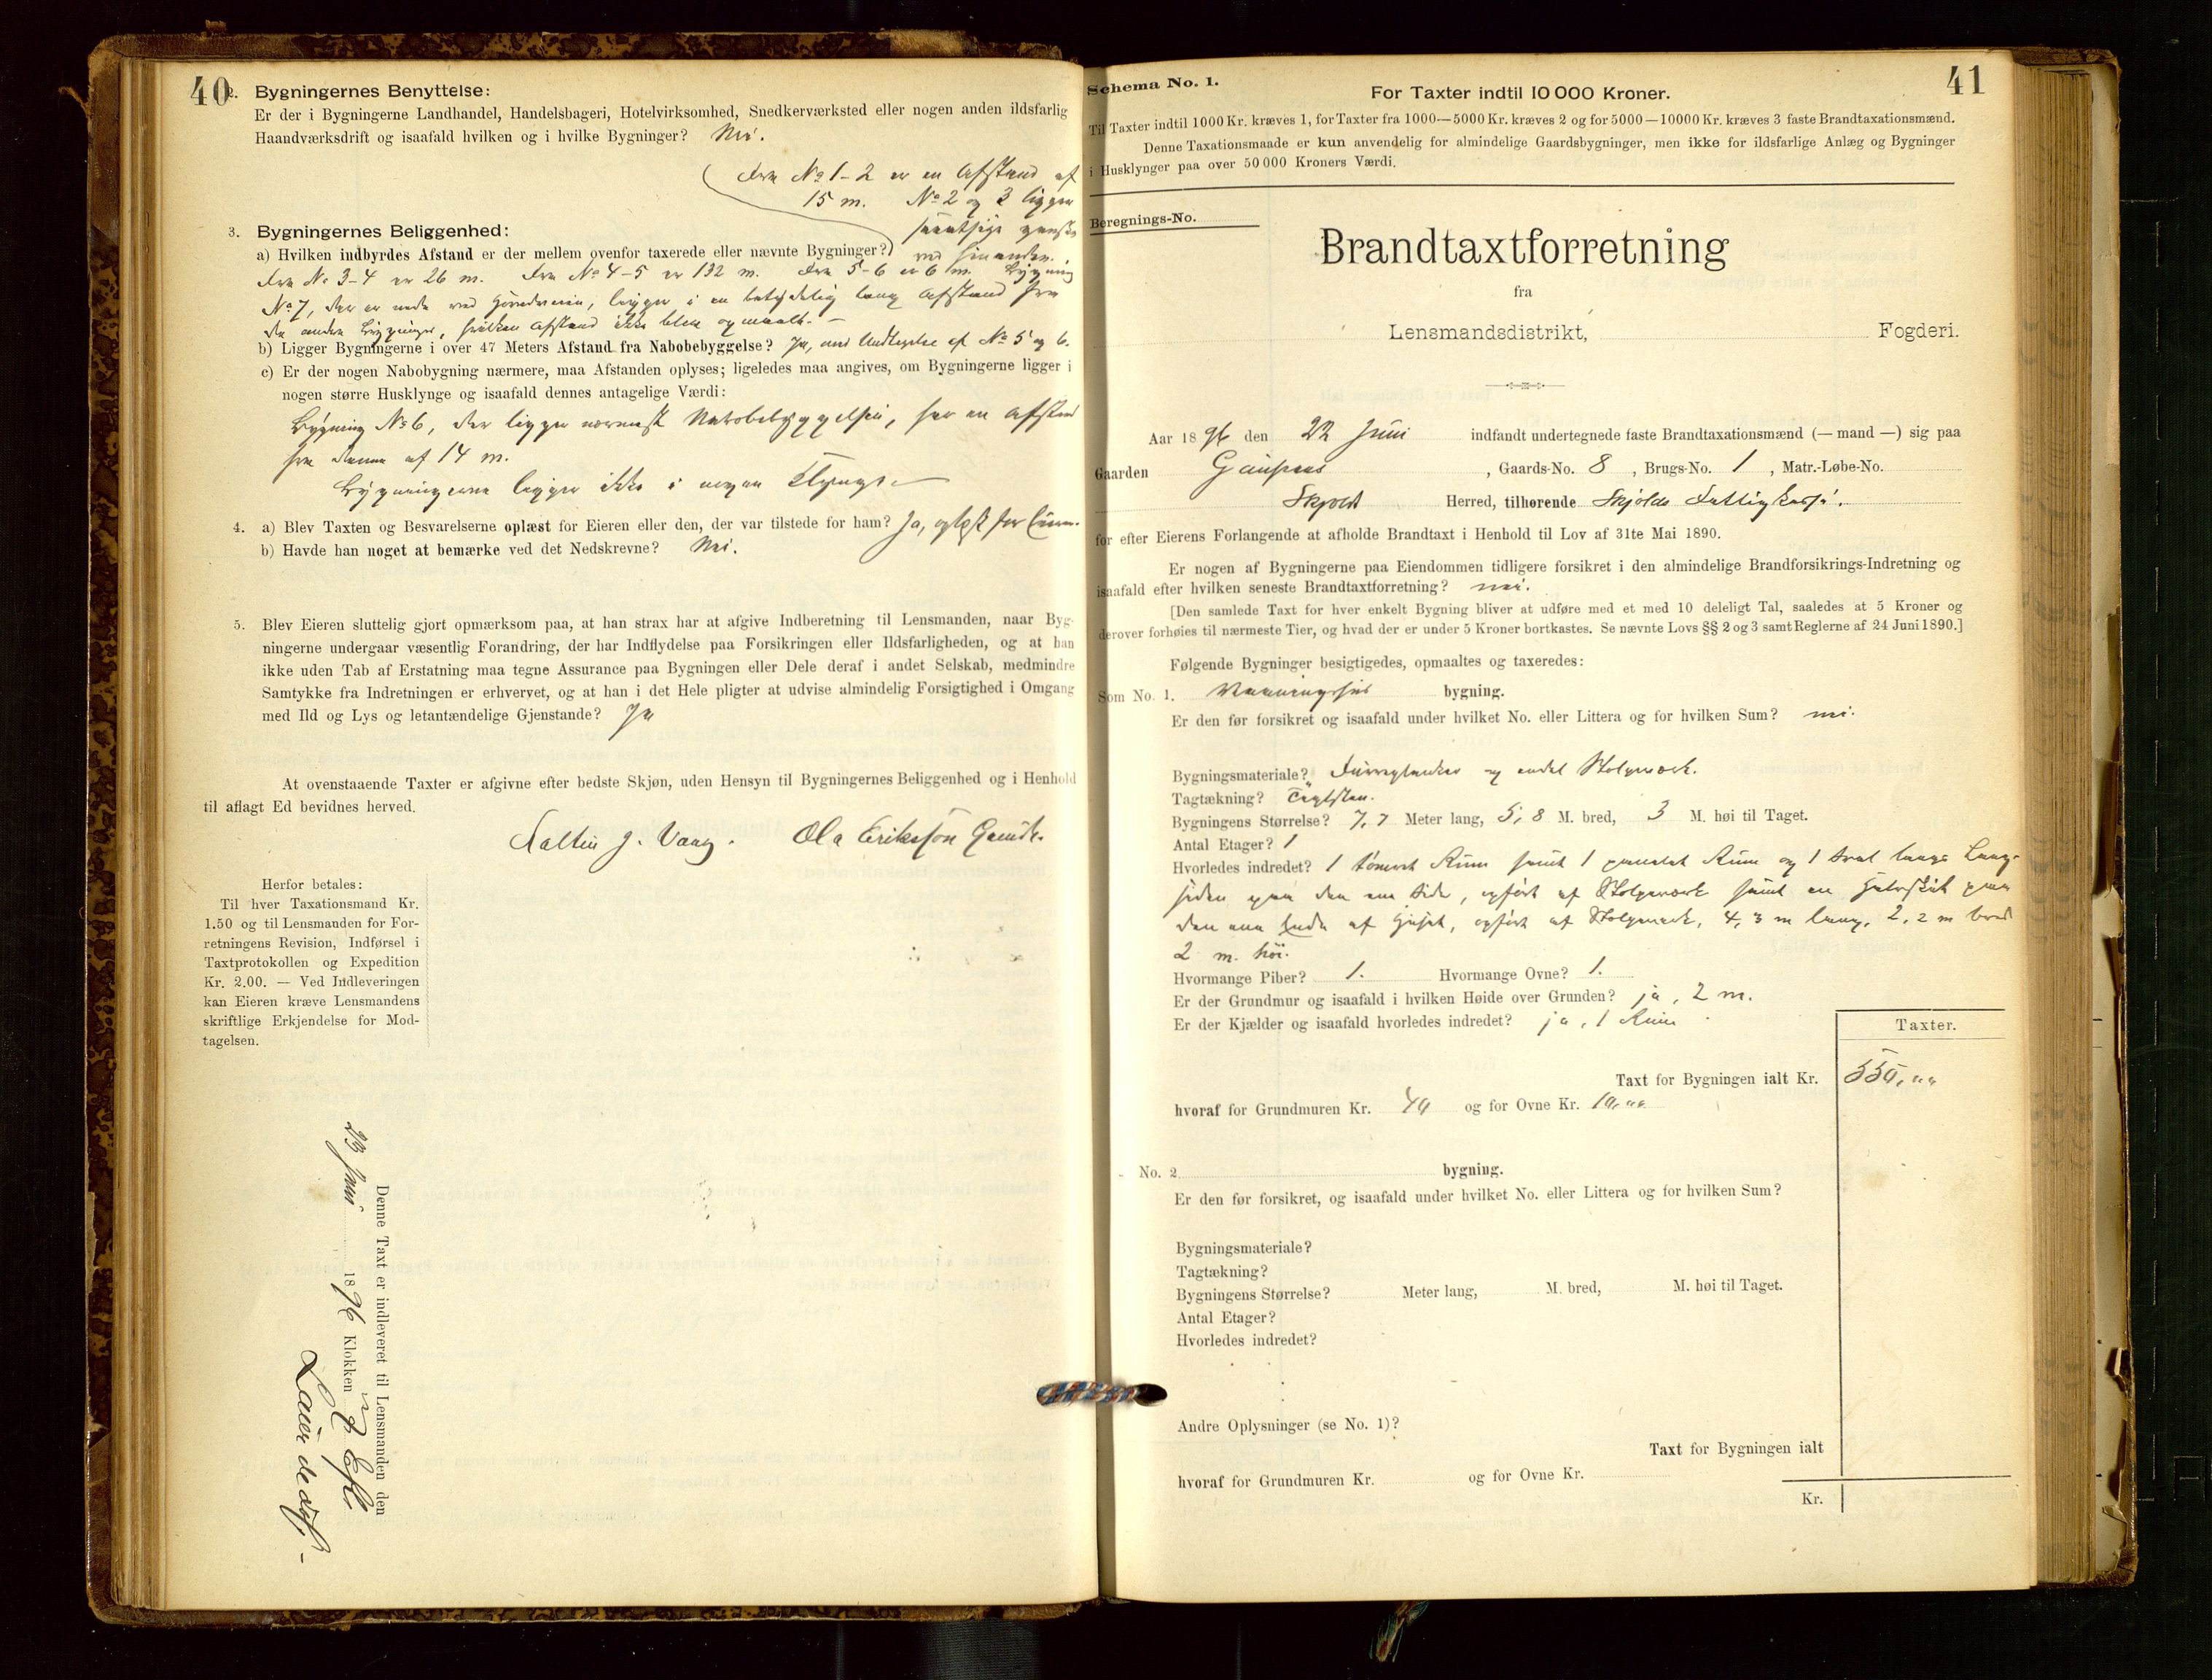 40
2. Bygningernes Benyttelse:
Er der i Bygningerne Landhandel, Handelsbageri, Hotelvirksomhed, Snedkerværksted eller nogen anden ildsfarlig
Haandværksdrift og isaafald hvilken og i hvilke Bygninger? Nei.
Fra No 1-2 er en Afstand af
15 m. No 2 og 3 ligger
ganske
3. Bygningernes Beliggenhed:
a) Hvilken indbyrdes Afstand er der mellem ovenfor taxerede eller nævnte Bygninger? ved hinanden.
Fra No 3-4 er 26 m. Fra No 4-5 er 132 m. Fra 5-6 er 6 m. Bygning
No 7, der er nede ved , ligger i en betydelig lang Afstand fra
de andre Bygninger, hvilken Afstand ikke blev opmaalt. —
b) Ligger Bygningerne i over 47 Meters Afstand fra Nabobebyggelse? Ja, med Undtagelse af No 5 og 6.
c) Er der nogen Nabobygning nærmere, maa Afstanden oplyses; ligeledes maa angives, om Bygningerne ligger i
nogen større Husklynge og isaafald dennes antagelige Værdi:
Bygning No 6, der ligger nærmest Nabobebyggelsen, har en Afstand
fra denne af 14 m.
Bygningerne ligger ikke i nogen Klynge. —
4. a) Blev Taxten og Besvarelserne oplæst for Eieren eller den, der var tilstede for ham? Ja, oplæst for Eieren.
b) Havde han noget at bemærke ved det Nedskrevne? Nei.
5. Blev Eieren sluttelig gjort opmærksom paa, at han strax har at afgive Indberetning til Lensmanden, naar Byg-
ningerne undergaar væsentlig Forandring, der har Indflydelse paa Forsikringen eller Ildsfarligheden, og at han
ikke uden Tab af Erstatning maa tegne Assurance paa Bygningen eller Dele deraf i andet Selskab, medmindre
Samtykke fra Indretningen er erhvervet, og at han i det Hele pligter at udvise almindelig Forsigtighed i Omgang
med Ild og Lys og letantændelige Gjenstande? Ja
At ovenstaaende Taxter er afgivne efter bedste Skjøn, uden Hensyn til Bygningernes Beliggenhed og i Henhold
til aflagt Ed bevidnes herved.
J. Vaag. Ola Eriksson
Herfor betales:
Til hver Taxationsmand Kr.
1.50 og til Lensmanden for For-
retningens Revision, Indførsel i
Taxtprotokollen og Expedition
Kr. 2.00. — Ved Indleveringen
kan Eieren kræve Lensmandens
skriftlige Erkjendelse for Mod-
tagelsen.
Denne Taxt er indleveret til Lensmanden den
23 Juni 1896 Klokken Eft.
41
Schema No. 1.
For Taxter indtil 10 000 Kroner.
Til Taxter indtil 1000 Kr. kræves 1, for Taxter fra 1000—5000 Kr. kræves 2 og for 5000—10000 Kr. kræves 3 faste Brandtaxationsmænd.
Denne Taxationsmaade er kun anvendelig for almindelige Gaardsbygninger, men ikke for ildsfarlige Anlæg og Bygninger
i Husklynger paa over 50 000 Kroners Værdi.
Beregnings-No.
Brandtaxtforretning
fra
Lensmandsdistrikt, Fogderi.
Aar 1896 den 22 Juni indfandt undertegnede faste Brandtaxationsmænd (— mand —) sig paa
Gaarden , Gaards-No. 8, Brugs-No. 1, Matr.-Løbe-No.
Skjold Herred, tilhørende Skjolds Fattigkasse.
for efter Eierens Forlangende at afholde Brandtaxt i Henhold til Lov af 31te Mai 1890.
Er nogen af Bygningerne paa Eiendommen tidligere forsikret i den almindelige Brandforsikrings-Indretning og
isaafald efter hvilken seneste Brandtaxtforretning? nei.
[Den samlede Taxt for hver enkelt Bygning bliver at udføre med et med 10 deleligt Tal, saaledes at 5 Kroner og
derover forhøies til nærmeste Tier, og hvad der er under 5 Kroner bortkastes. Se nævnte Lovs §§ 2 og 3 samt Reglerne af 24 Juni 1890.]
Følgende Bygninger besigtigedes, opmaaltes og taxeredes:
Som No. 1. Vaaningshus bygning.
Er den før forsikret og isaafald under hvilket No. eller Littera og for hvilken Sum? nei.
Bygningsmateriale? Furuplanker og endel Stolpeverk.
Tagtækning? Taglsten.
Bygningens Størrelse? 7,7 Meter lang, 5,8 M. bred, 3 M. høi til Taget.
Antal Etager? 1
Hvorledes indredet? 1 tømret Rum samt 1 panelet Rum og 1 Sval langs Lang-
siden paa den ene Side, opført af Stolpeverk samt en paa
den ene Ende af Huset, opført af Stolpeverk, 4,3 m lang, 2,2 m bred
2 m. høi.
Hvormange Piber? 1. Hvormange Ovne? 1.
Er der Grundmur og isaafald i hvilken Høide over Grunden? ja, 2 m.
Er der Kjælder og isaafald hvorledes indredet? ja, 1 Rum
Taxter.
Taxt for Bygningen ialt Kr. 550,00
hvoraf for Grundmuren Kr. 40 og for Ovne Kr. 10,00
No. 2 bygning.
Er den før forsikret, og isaafald under hvilket No. eller Littera og for hvilken Sum?
Bygningsmateriale?
Tagtækning?
Bygningens Størrelse? Meter lang, M. bred, M. høi til Taget.
Antal Etager?
Hvorledes indredet?
Andre Oplysninger (se No. 1)?
Taxt for Bygningen ialt
hvoraf for Grundmuren Kr. og for Ovne Kr.
Kr.